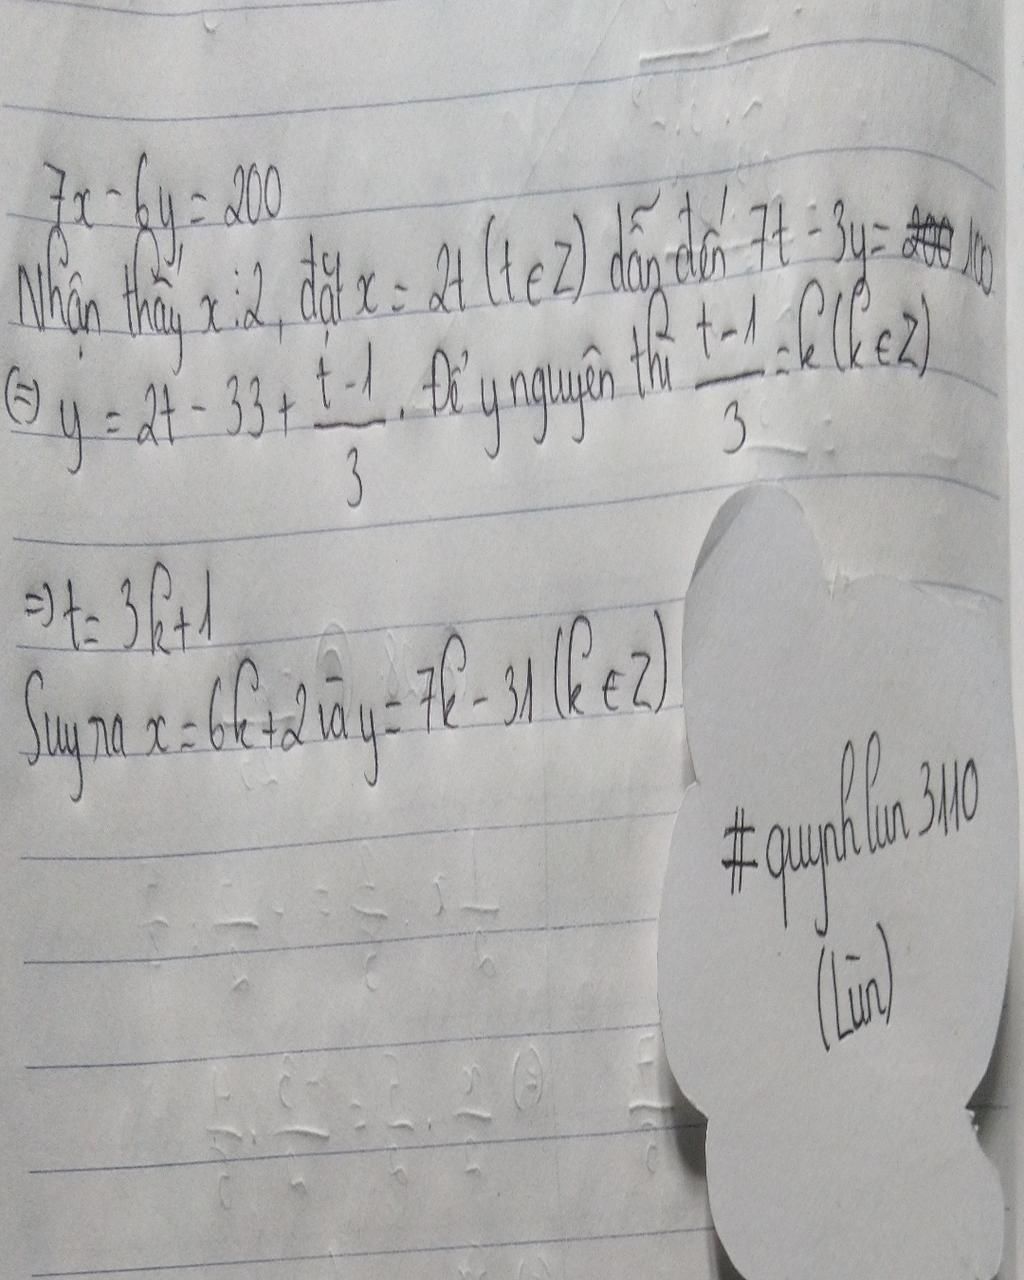 7x - 6y = 200
Nhận thấy x ⋮ 2, đặt x = 2t (t ∈ Z) dẫn đến 7t - 3y = 100
(=) y = 2t - 33 + \frac{t-1}{3}. Để y nguyên thì \frac{t-1}{3} = k (k ∈ Z)
=) t = 3k+1
Suy ra x = 6k+2 và y = 7k - 31 (k ∈ Z)
#quynh lun 3110
(Lùn)